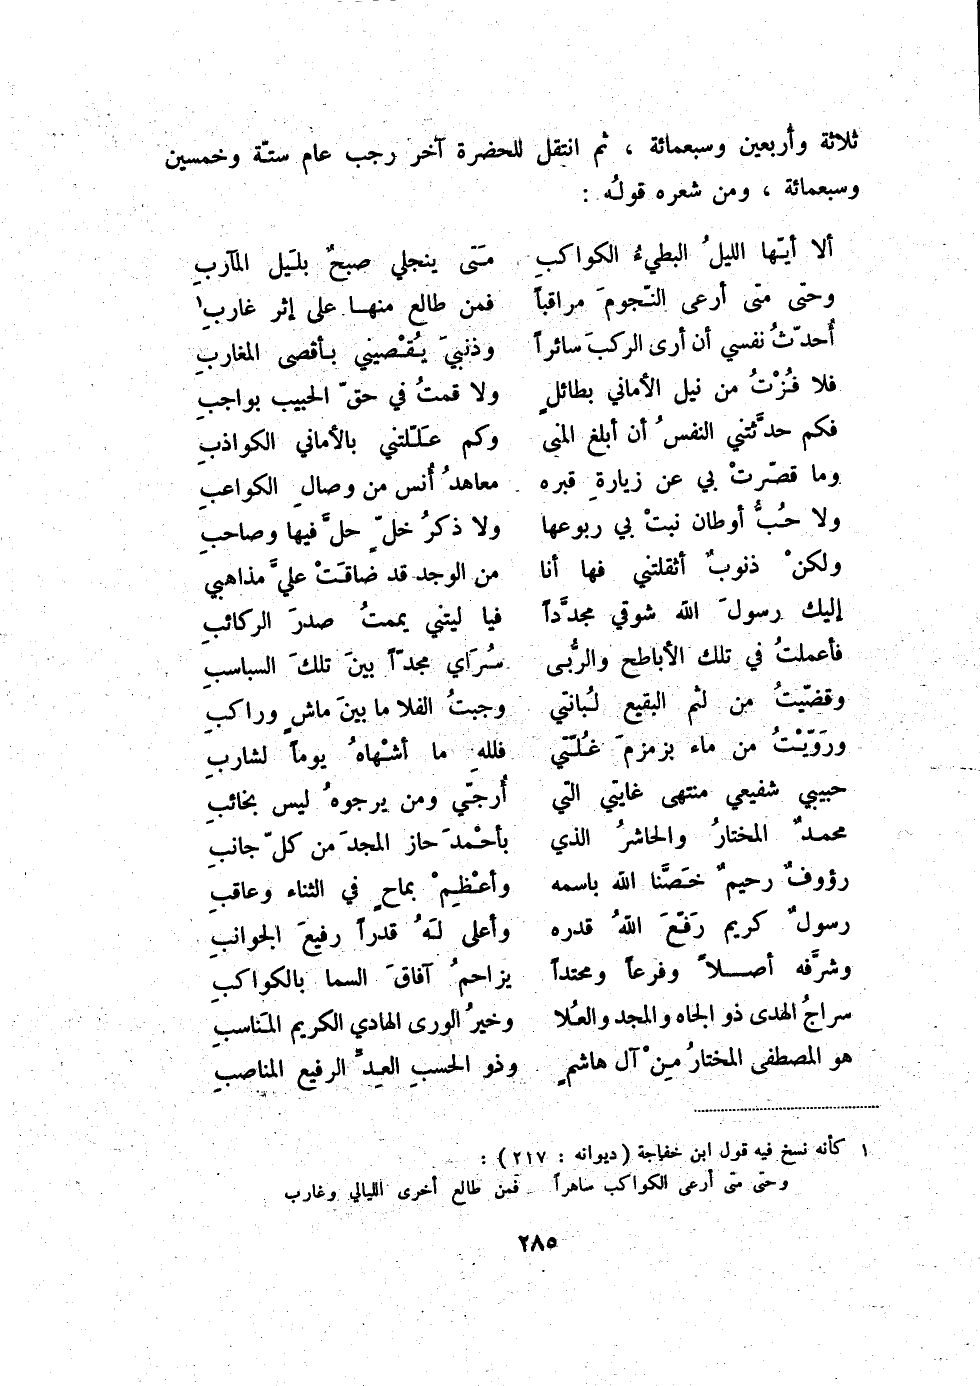 ثلاثة وأربعين وسبعمائة ، ثم انتقل للحضرة آخر رجب عام ستّة وخمسين
وسبعمائة ، ومن شعره قولُه :
ألا أيّها الليلُ البطيءُ الكواكبِ متَى ينجلي صبحٌ بليَل المآربِ
وحتى متى أرعى النّجومَ مراقباً فمن طالع منها على إثر غاربِ١
أُحدّثُ نفسي أن أرى الركبَ سائراً وذنبيَ يُقْصيني بأقصى المغاربِ
فلا فُزْتُ من نيل الأماني بطائلٍ ولا قمتُ في حقّ الحبيب بواجبِ
فكم حدَّثتني النفسُ أن أبلغ المنى وكم علّلتني بالأماني الكواذبِ
وما قصّرتْ بي عن زيارةِ قبره معاهدُ أُنس من وصالِ الكواعبِ
ولا حُبُّ أوطان نبتْ بي ربوعها ولا ذكرُ خلٍّ حلَّ فيها وصاحبِ
ولكنْ ذنوبٌ أثقلتني فها أنا من الوجد قد ضاقتْ عليَّ مذاهبي
إليك رسولَ الله شوقي مجدَّداً فيا ليتني يممتُ صدرَ الركائبِ
فأعملتُ في تلك الأباطح والرُّبى سُرَاي مجدّاً بينَ تلكَ السباسبِ
وقضّيتُ من لثم البقيع لُبانتي وجبتُ الفلا ما بينَ ماشٍ وراكبِ
وروّيْتُ من ماء بزمزمَ غُلّتي فللهِ ما أشْهاهُ يوماً لشاربِ
حبيبي شفيعي منتهى غايتي التي أُرجّي ومن يرجوهُ ليس بخائبِ
محمدٌ المختارُ والحاشرُ الذي بأحْمدَ حاز المجدَ من كلّ جانبِ
رؤوفٌ رحيمٌ خصَّنا الله باسمه وأعْظِمْ بماحٍ في الثناء وعاقبِ
رسولٌ كريم رَفّعَ اللهُ قدره وأعلى لهُ قدراً رفيعَ الجوانبِ
وشرَّفه أصلاً وفرعاً ومحتداً يزاحمُ آفاقَ السما بالكواكبِ
سراجُ الهدى ذو الجاه والمجد والعُلا وخيرُ الورى الهادي الكريم المناسبِ
هو المصطفى المختارُ مِنْ آل هاشمٍ وذو الحسبِ العدِّ الرفيع المناصبِ
١ كأنه نسخ فيه قول ابن خفاجة ( ديوانه : ٢١٧ ) :
وحتّى متى أرعى الكواكب ساهراً فمن طالع أخرى الليالي وغارب
٢٨٥